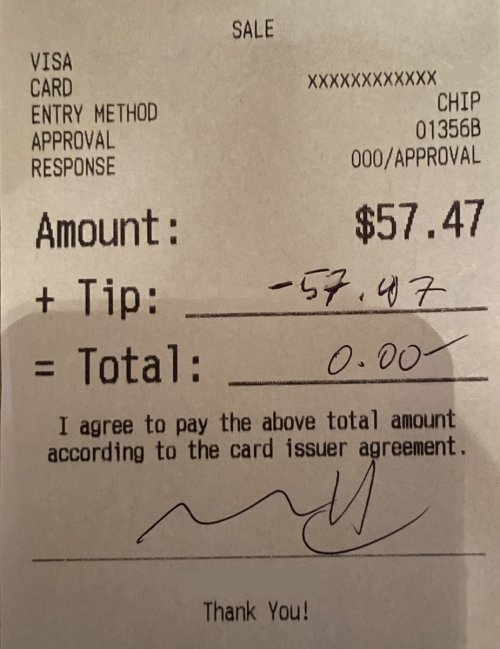 SALE
VISA
CARD XXXXXXXXXXXX
ENTRY METHOD CHIP
APPROVAL 01356B
RESPONSE 000/APPROVAL
Amount: $57.47
+ Tip: -57.47
= Total: 0.00
I agree to pay the above total amount
according to the card issuer agreement.
Thank You!